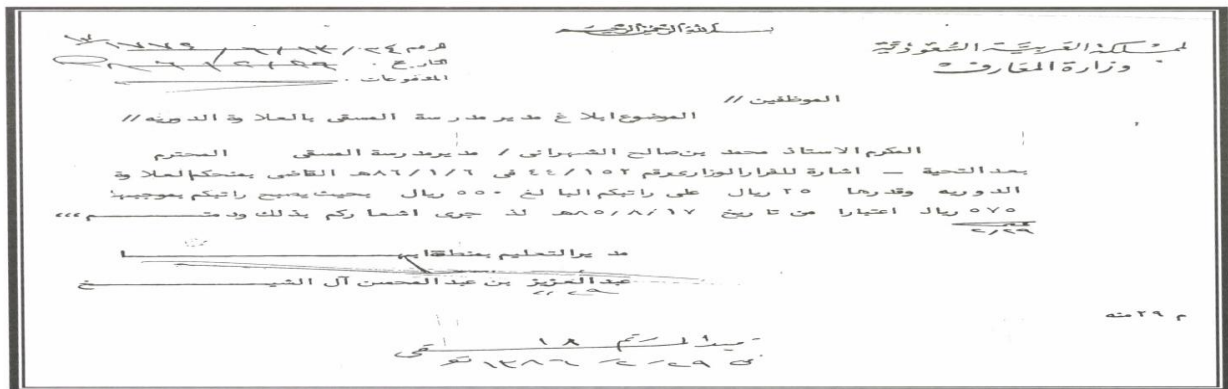 بسم الله الرحمن الرحيم
المملكة العربية السعودية
وزارة المعارف
الرقم ٢٤/١٣/
التاريخ
المدفوعات
الموظفين //
الموضوع ابلاغ مدير مدرسة المسقى بالعلاوة الدوريه //
المكرم الاستاذ محمد بن صالح الشهرانى / مدير مدرسة المسقى المحترم
بعد التحية – اشارة للقرار الوزارى رقم ٤٤/١٥٢ فى ٨٦/١/٦هـ القاضى بمنحكم العلاوة
الدوريه وقدرها ٢٥ ريال على راتبكم البالغ ٥٥٠ ريال بحيث يصبح راتبكم بموجبها
٥٧٥ ريال اعتبارا من تاريخ ٨٥/٨/١٧هـ لذ جرى اشعاركم بذلك ودمتم ،،،
٢/٢٩
مدير التعليم بمنطقة ابها
عبدالعزيز بن عبدالمحسن آل الشيخ
م ٢٩ منه
١٨
٢٩/٢/١٣٨٦